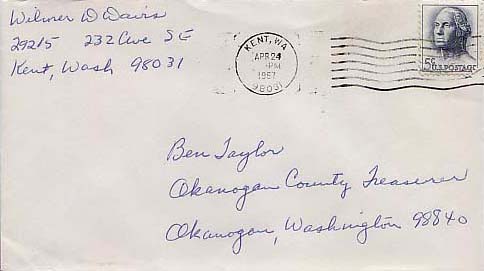 Wilmer D Davis
29215 232 Ave SE
Kent, Wash 98031
KENT, WA
APR 24
PM
1967
98031
5¢ U.S. POSTAGE
Ben Taylor
Okanogan County Treasurer
Okanogan, Washington 98840